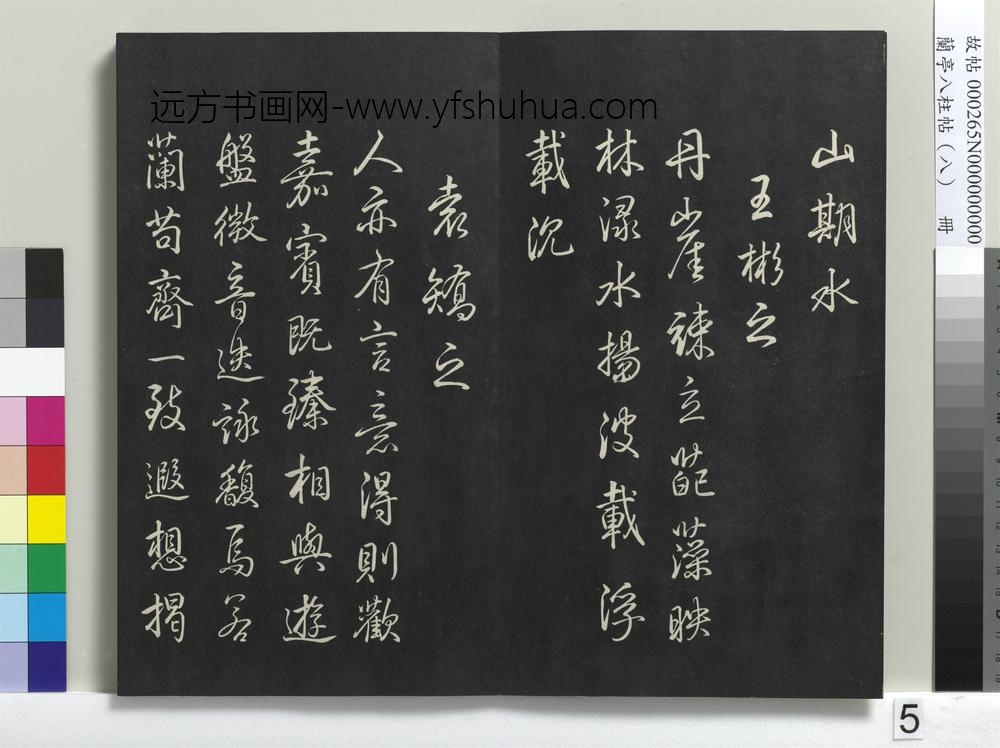 山期水
王彬之
丹崖竦立葩藻映
林淥水揚波載浮
載沉
袁矯之
人亦有言意得則歡
嘉賓既臻相與遊
盤微音迭詠馥焉若
蘭苟齊一致遐想揭
远方书画网-www.yfshuhua.com
故帖 000265N000000000
蘭亭八柱帖(八) 冊
5